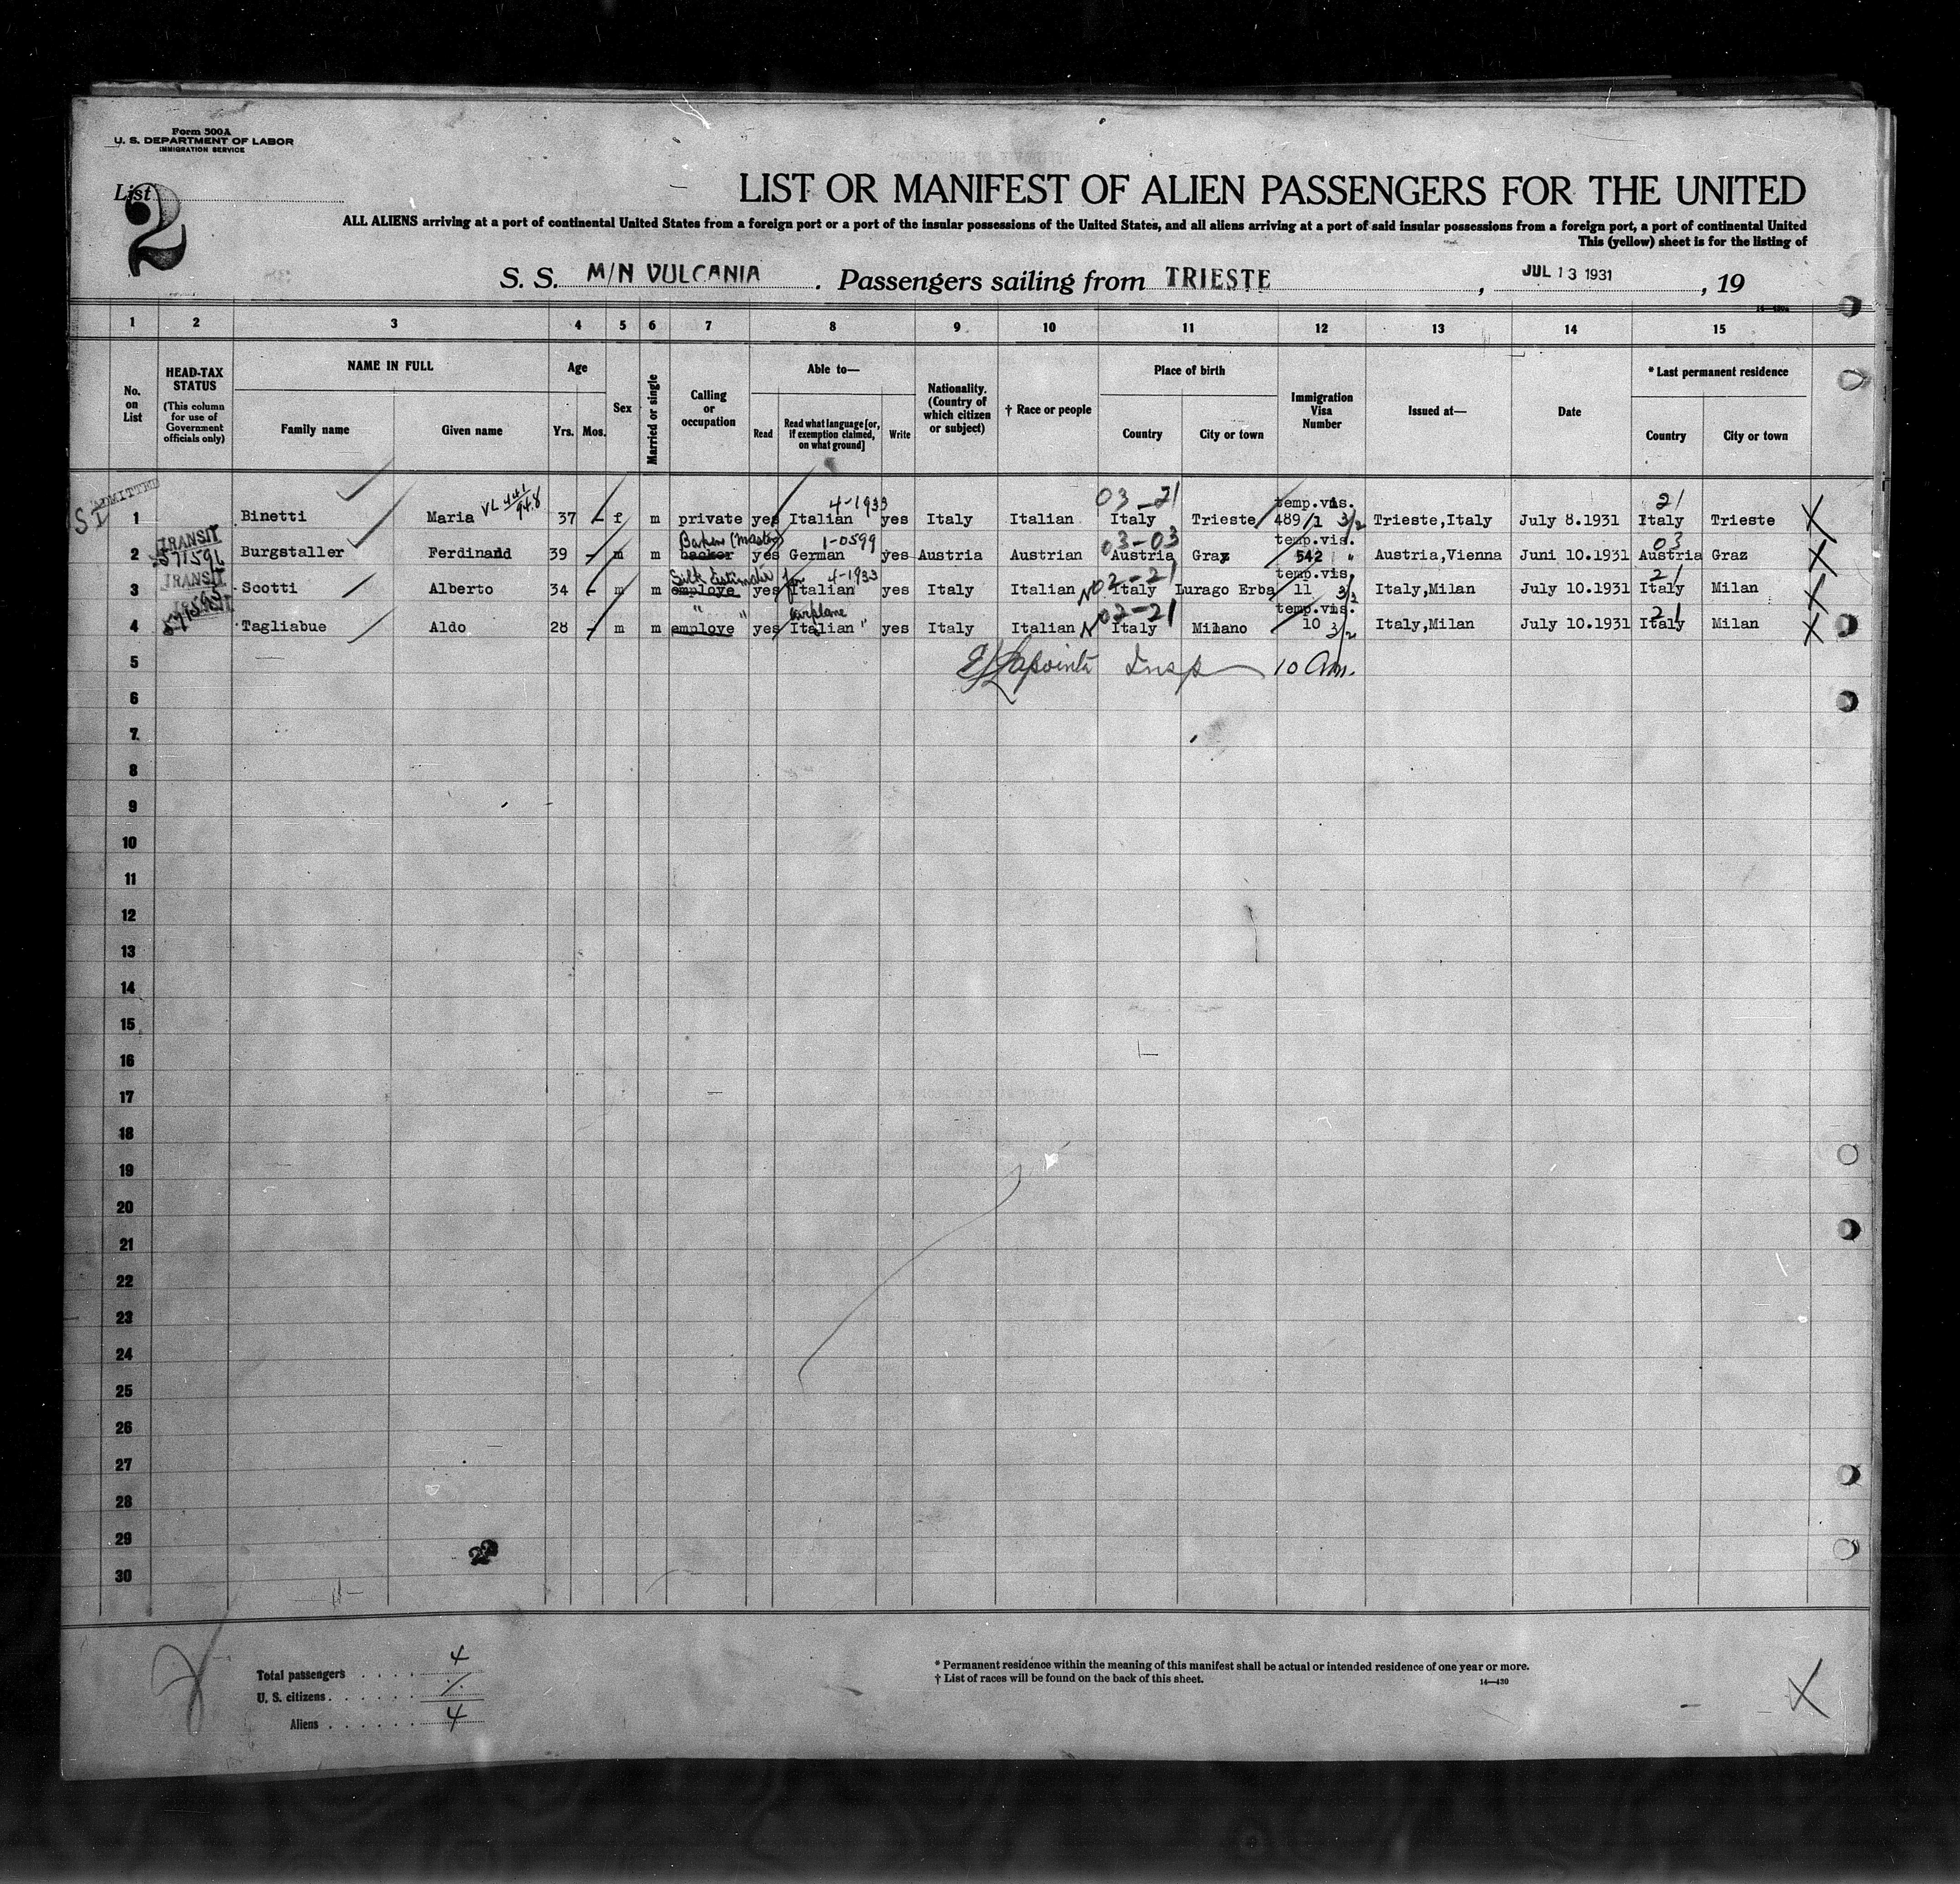 Form 500A
U. S. DEPARTMENT OF LABOR
IMMIGRATION SERVICE
List
2
LIST OR MANIFEST OF ALIEN PASSENGERS FOR THE UNITED
ALL ALIENS arriving at a port of continental United States from a foreign port or a port of the insular possessions of the United States, and all aliens arriving at a port of said insular possessions from a foreign port, a port of continental United
This (yellow) sheet is for the listing of
S. S. M/N VULCANIA . Passengers sailing from TRIESTE , JUL 13 1931 , 19
1 2 3 4 5 6 7 8 9 10 11 12 13 14 15
No. on List
HEAD-TAX STATUS
(This column for use of Government officials only)
NAME IN FULL
Family name Given name
Age
Yrs. Mos.
Sex
Married or single
Calling or occupation
Able to—
Read
Read what language [or, if exemption claimed, on what ground]
Write
Nationality. (Country of which citizen or subject)
† Race or people
Place of birth
Country City or town
Immigration Visa Number
Issued at—
Date
* Last permanent residence
Country City or town
ADMITTED
SI
VL 441/948 4-1933 03-21 temp.vis. 21
1 Binetti Maria 37 - f m private yes Italian yes Italy Italian Italy Trieste 489/1 3/2 Trieste,Italy July 8.1931 Italy Trieste X
TRANSIT Baker (Master) 1-0599 03-03 temp.vis. 03
2 571596 Burgstaller Ferdinand 39 - m m backer yes German yes Austria Austrian Austria Graz 542 " Austria,Vienna Juni 10.1931 Austria Graz X
TRANSIT Silk Estimator for 4-1933 02-21 temp.vis. 21
3 571595 Scotti Alberto 34 - m m employe yes Italian yes Italy Italian No Italy Lurago Erba 11 3/2 Italy,Milan July 10.1931 Italy Milan X
TRANSIT " " airplane 02-21 temp.vis. 21
4 Tagliabue Aldo 28 - m m employe yes Italian " yes Italy Italian N Italy Milano 10 3/2 Italy,Milan July 10.1931 Italy Milan X
5 Lapointe Insp 10 Am.
6
7
8
9
10
11
12
13
14
15
16
17
18
19
20
21
22
23
24
25
26
27
28
29
22
30
Total passengers 4
U. S. citizens
Aliens 4
* Permanent residence within the meaning of this manifest shall be actual or intended residence of one year or more.
† List of races will be found on the back of this sheet.
14—430
X